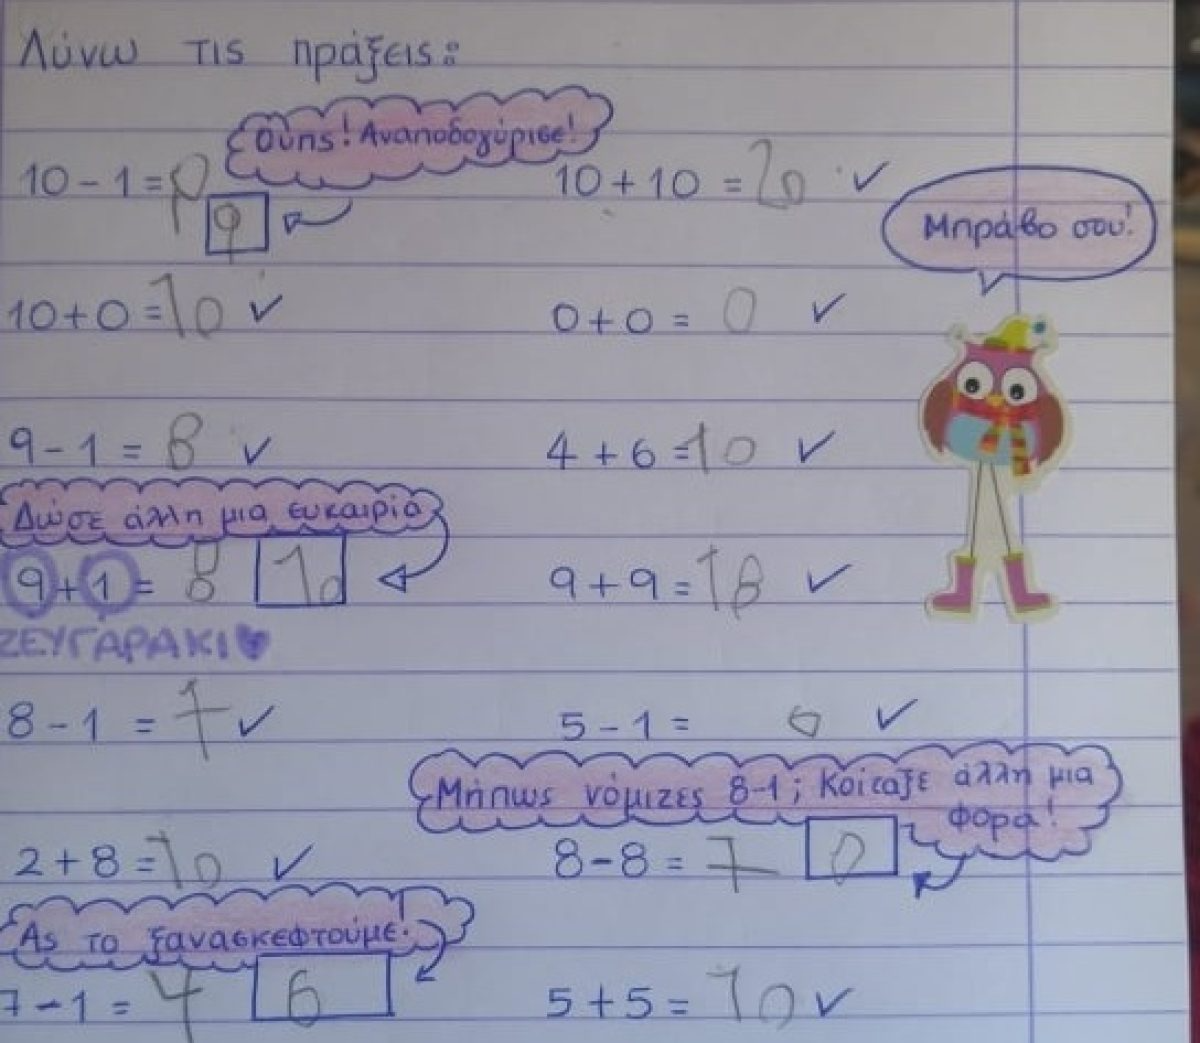 Λύνω τις πράξεις:
Ούπς! Αναποδογύρισε!
10 - 1 = 9
9
10 + 10 = 20 ✓
Μπράβο σου!
10 + 0 = 10 ✓
0 + 0 = 0 ✓
9 - 1 = 8 ✓
4 + 6 = 10 ✓
Δώσε άλλη μια ευκαιρία
9 + 1 = 8 10
9 + 9 = 18 ✓
ΖΕΥΓΑΡΑΚΙ
8 - 1 = 7 ✓
5 - 1 = ✓
Μήπως νόμιζες 8-1; Κοίταξε άλλη μια
φορά!
2 + 8 = 10 ✓
8 - 8 = 7 0
Ας το ξανασκεφτούμε!
7 - 1 = 4 6
5 + 5 = 10 ✓